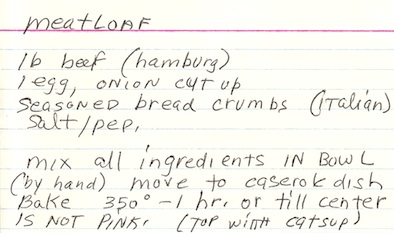 meatLOAF
1b beef (hamburg)
1 egg, ONION cut up
SEASONED bread crumbs (ITalian)
Salt/pep,
mix all ingredients IN BOWL
(by hand) move to caserok dish
Bake 350° - 1 hr. or till center
IS NOT PINK. (TOP WITH catsup)